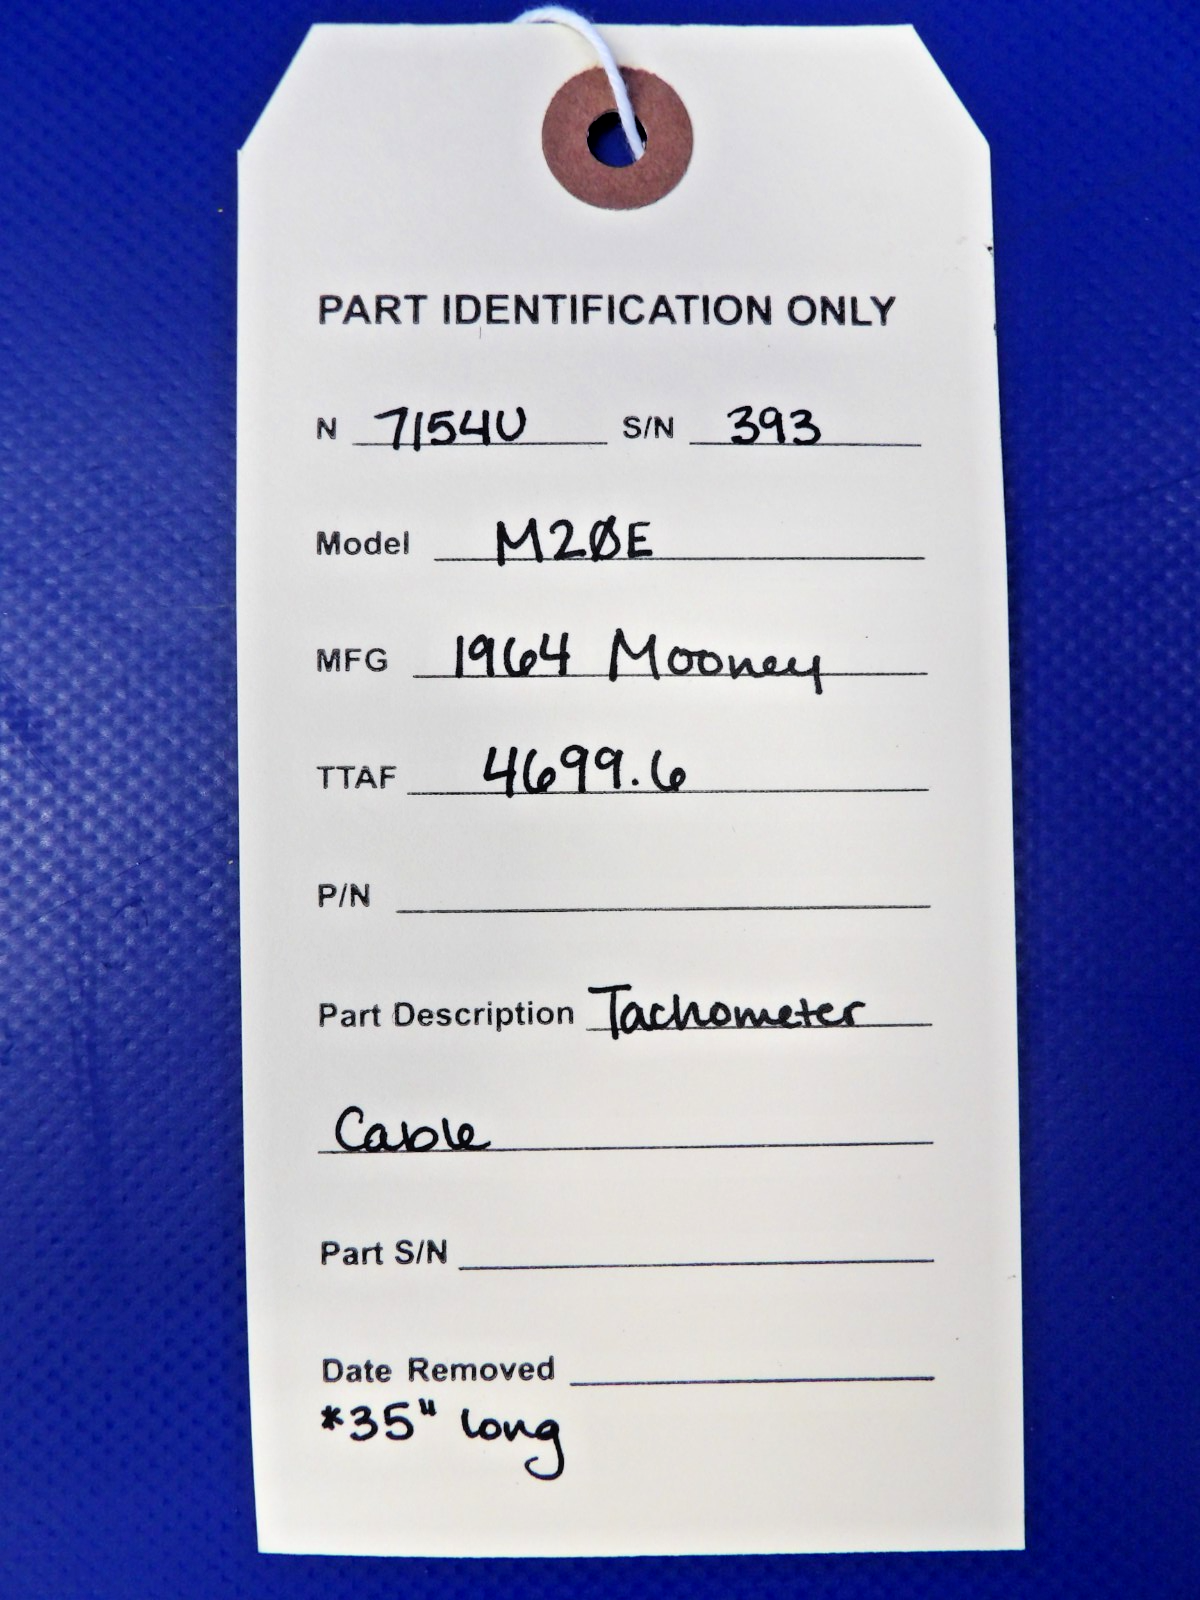 PART IDENTIFICATION ONLY
N 7154U S/N 393
Model M20E
MFG 1964 Mooney
TTAF 4699.6
P/N
Part Description Tachometer
Cable
Part S/N
Date Removed
*35" long